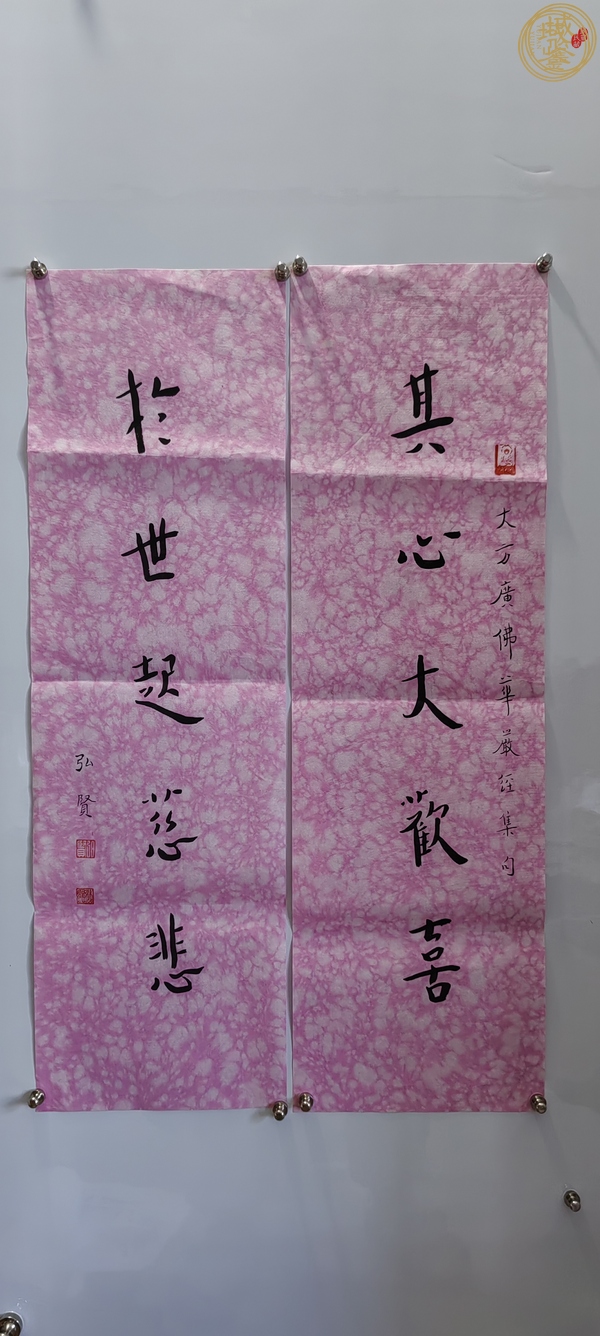 大方廣佛華嚴經集句
其心大歡喜
於世起慈悲
弘賢